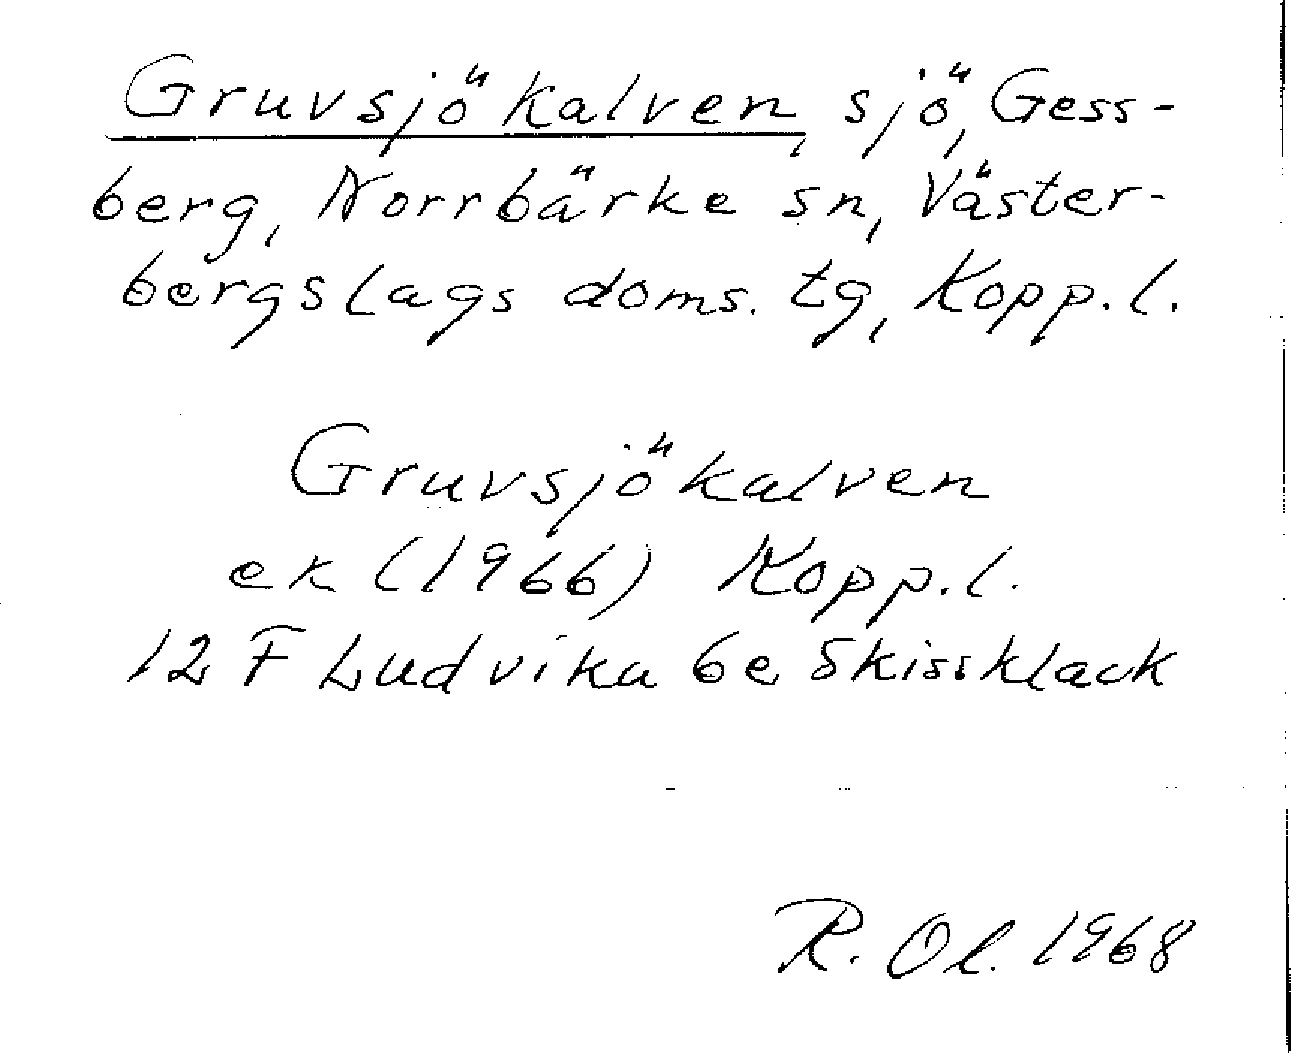 Gruvsjökalven, sjö, Gess-
berg, Norrbärke sn, Väster-
bergslags doms. tg, Kopp. l.
Gruvsjökalven
ek (1966) Kopp. l.
12 F Ludvika 6e Skissklack
R. Ol. 1968